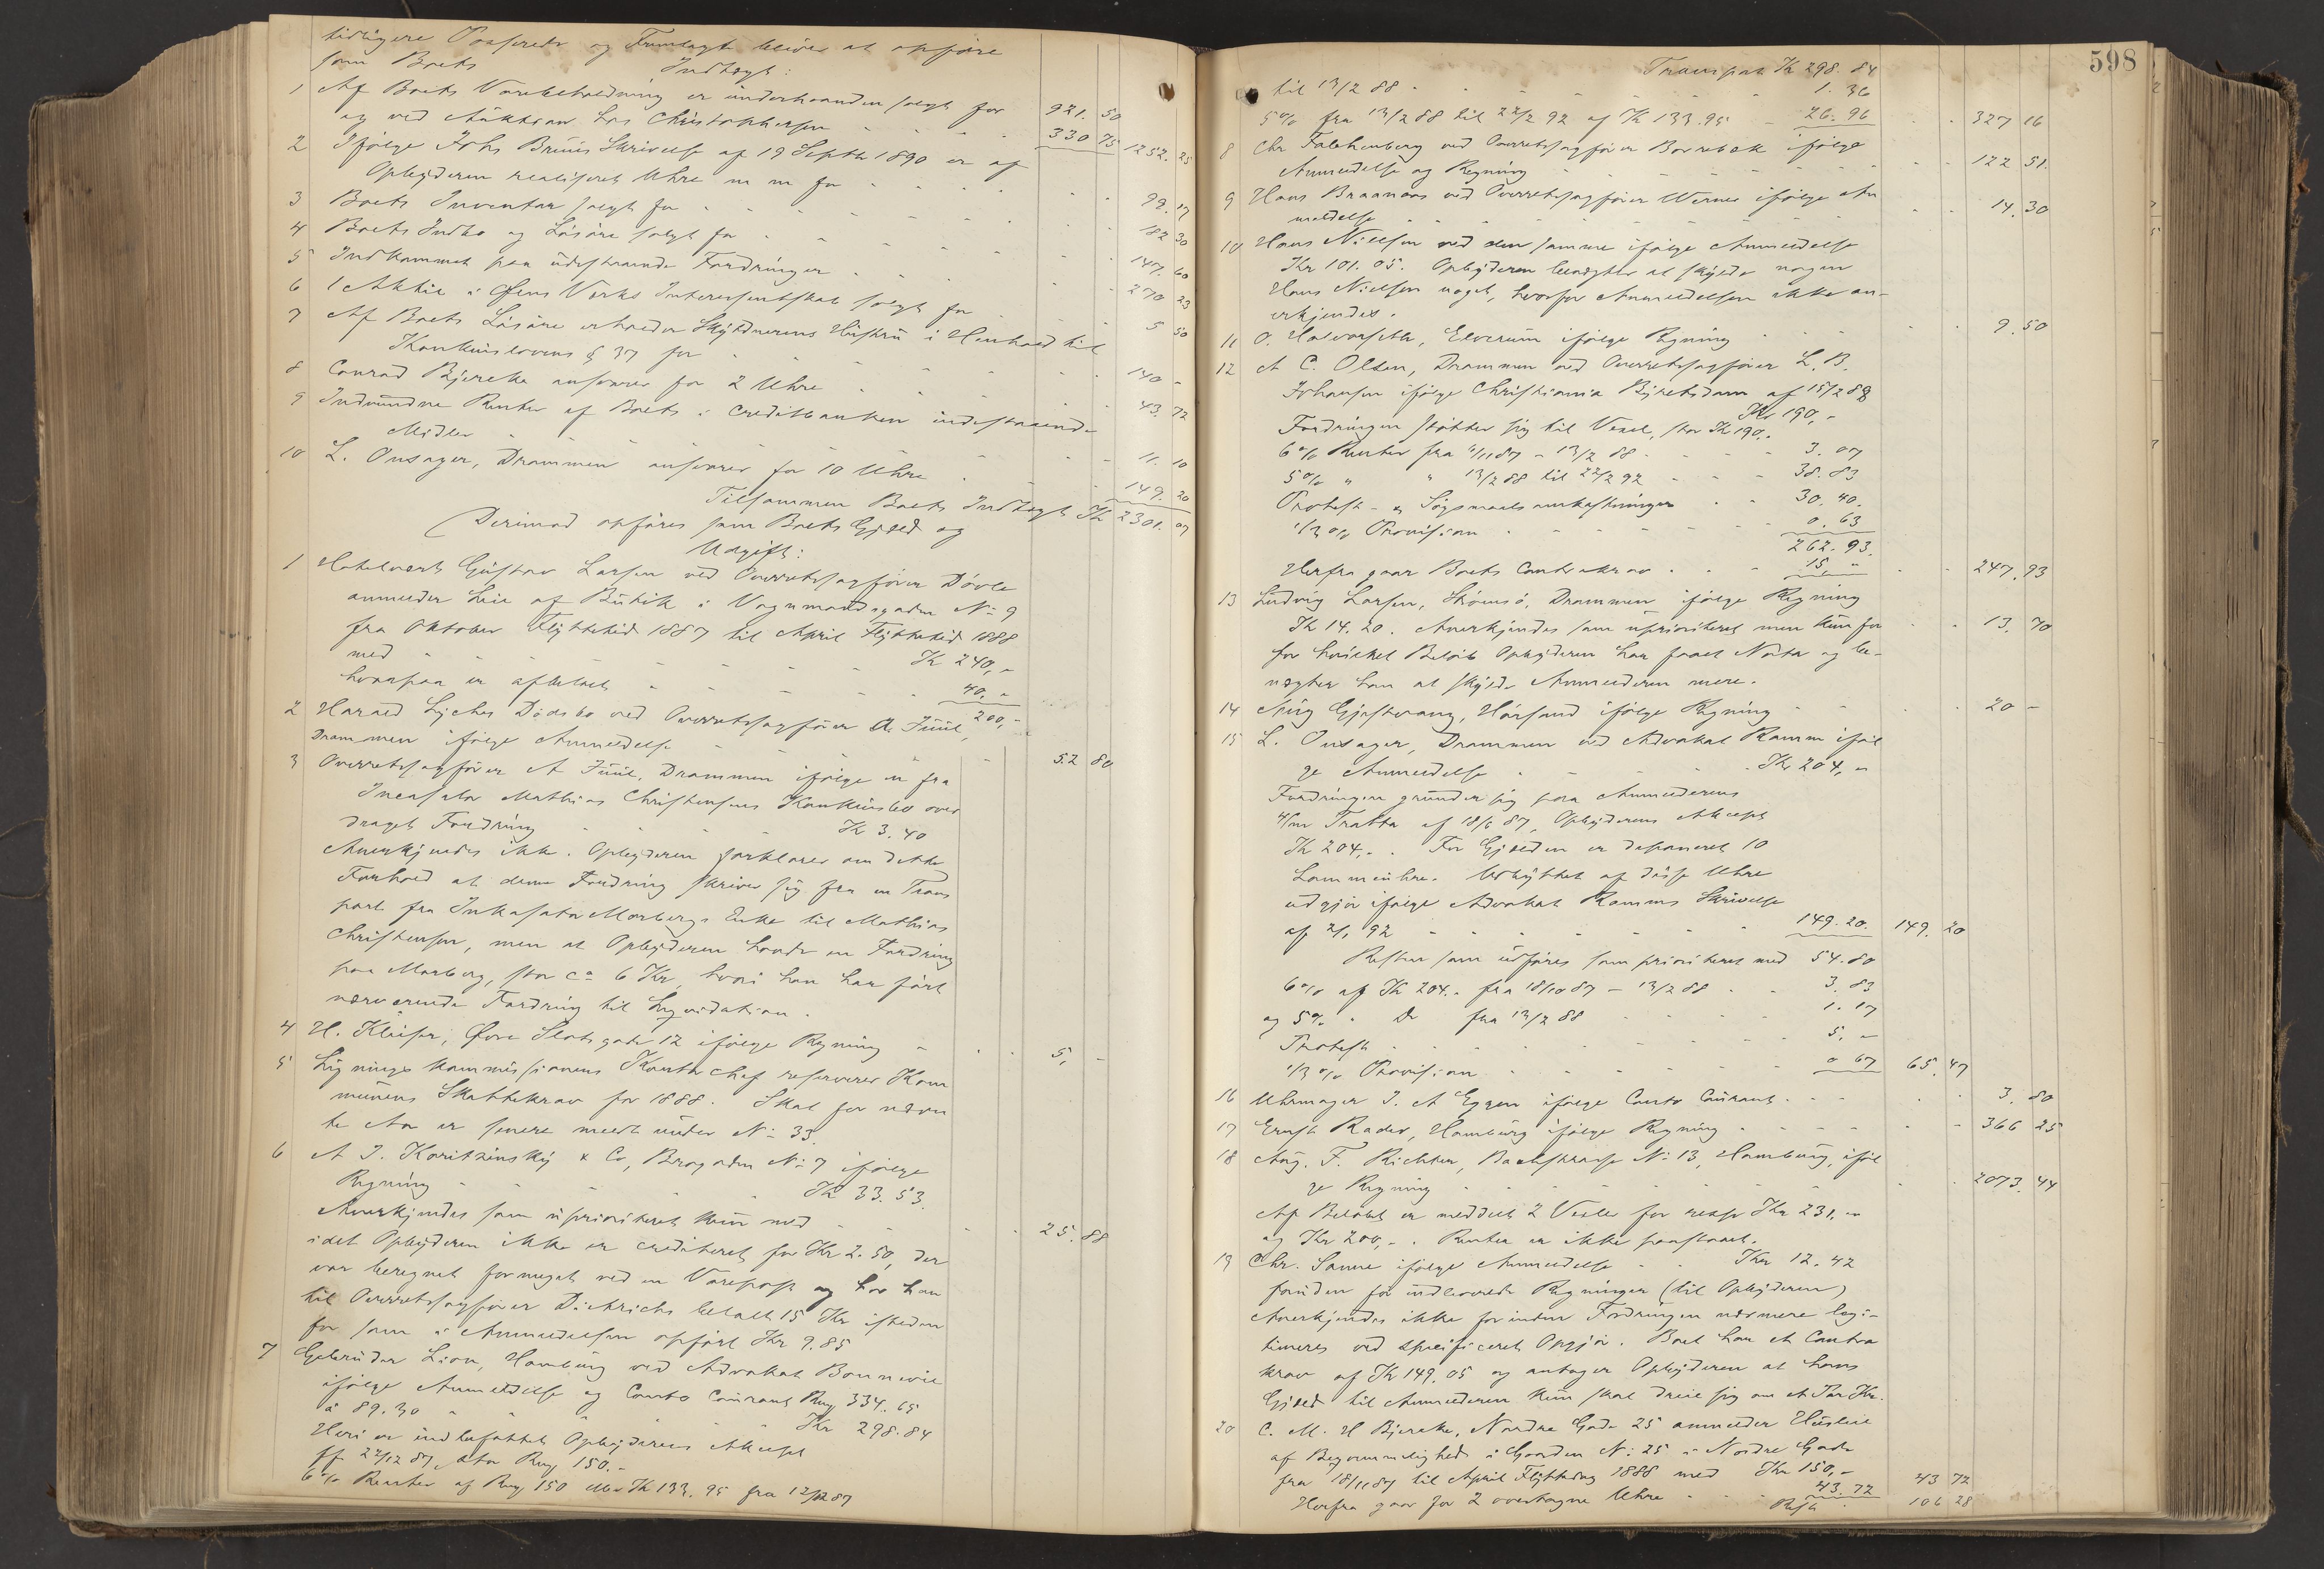 tidligere Passerede og Fremlagte bliver at opføre
som Boets Indtægt:
1 Af Boets Varebeholdning er underhaanden solgt for 921. 50
og ved Auktion hos Christophersen 330 75 1252. 25
2 Ifølge Johs Bruuns Skrivelse af 19 Septbr 1890 er af
Opbyderen realiseret Uhre m m for 99. 17
3 Boets Inventar solgt for 182 30
4 Boets Indbo og Løsøre solgt for 147. 60
5 Indkommet paa udestaaende Fordringer 270 23
6 1 Aktie i Ofens Værks Interessentskab solgt for 5 50
7 Af Boets Løsøre erholder Skyldnerens Hustru i Henhold til
Konkurslovens § 37 for 140 -
8 Conrad Bjercke ansvarer for 2 Uhre 43. 72
9 Indvundne Renter af Boets i Creditbanken indestaaende
Midler 11. 10
10 L. Onsager, Drammen ansvarer for 10 Uhre 149. 20
Tilsammen Boets Indtægt Kr 2301. 07
Derimod opføres som Boets Gjæld og
Udgift:
1 Hotelvært Gustav Larsen ved Overretssagfører Døvle
anmelder Leie af Butik i Vognmandsgaden No 9
fra Oktober Flyttetid 1887 til April Flyttetid 1888
med Kr 240,-
hvorpaa er afbetalt 40,-
200,-
2 Harald Lyches Dødsbo ved Overretssagfører A. Juul,
Drammen ifølge Anmeldelse 52 80
3 Overretssagfører A Juul, Drammen ifølge en fra
Incasator Mathias Christensens Konkursbo over
draget Fordring Kr 3. 40
Anerkjendes ikke. Opbyderen forklarer om dette
Forhold at denne Fordring skriver sig fra en Trans
port fra Inkasator Morbergs Enke til Mathias
Christensen, men at Opbyderen havde en Fordring
paa Morberg, stor ca 6 Kr, hvori han har ført
nærværende Fordring til Liqvidation.
4 H. Klüser, Øvre Slotsgade 12 ifølge Regning 5, -
5 Lignings kommissionens Kontorchef reserverer Kom
munens Skattekrav for 1888. Skat for nævn
te Aar er senere meldt under No 33.
6 A J. Koritzinsky & Co, Brogaden No 7 ifølge
Regning Kr 33. 53
Anerkjendes som uprioriteret kun med 25. 88
idet Opbyderen ikke er crediteret for Kr 2. 50, der
var beregnet formeget ved en Varepost og har han
til Overretssagfører Dietrichs betalt 15 Kr isteden
for som i Anmeldelsen opført Kr 9. 85
7 Gebrüder Lion, Hamburg ved Advokat Bonnevie
ifølge Anmeldelse og Conto Courant Rmg 334. 65
à 89. 30 Kr 298. 84
Heri er indbefattet Opbyderens Accept
pf 22/12 87, stor Rmg 150.-
6 % Renter af Rmg 150 Kr 133. 95 fra 12/12 87
598
Transport Kr 298. 84
til 13/2 88 1. 36
5 % fra 13/2 88 til 22/2 92 af Kr 133. 95 26. 96 327 16
8 Chr Falckenberg ved Overretssagfører Borrebæk ifølge
Anmeldelse og Regning 122 51.
9 Hans Braanaas ved Overretssagfører Werner ifølge An
meldelse 14. 30
10 Hans Nielsen ved den samme ifølge Anmeldelse
Kr 101. 05. Opbyderen benægter at skylde nogen
Hans Nielsen noget, hvorfor Anmeldelsen ikke an-
erkjendes.
11 O. Halvorseth, Elverum ifølge Regning 9. 50
12 A C. Olsen, Drammen ved Overretssagfører L. B.
Johansen ifølge Christiania Byretsdom af 15/2 88
Kr 190,-
Fordringen støtter sig til Vexel, stor Kr 190,-
6 % Renter fra 4/11 87 - 13/2 88 3. 07
5 % " " 13/2 88 til 22/2 92 38. 83
Protest- & Søgsmaalsomkostninger 30. 40.
1/3 % Provision 0. 63
262. 93.
Herfra gaar Boets Contrakrav 15, - 247. 93
13 Ludvig Larsen, Strømsø, Drammen ifølge Regning
Kr 14. 20. Anerkjendes som uprioriteret men kun for 13. 70
for hvilket Beløb Opbyderen har faaet Nota og be-
nægter han at skylde Anmelderen mere.
14 Aug Gjestvang, Hørsand ifølge Regning 20 -
15 L. Onsager, Drammen ved Advokat Ramm iføl
ge Anmeldelse Kr 204, -
Fordringen grunder sig paa Anmelderens
4/m Tratta af 18/6 87, Opbyderens Accept
Kr 204,-. For Gjælden er deponeret 10
Lommeuhre. Udbyttet af disse Uhre
udgjør ifølge Advokat Ramms Skrivelse
af 2/1 92 149. 20. 149. 20
Resten som udføres som prioriteret med 54. 80
6 % af Kr 204.- fra 18/10 87 - 13/2 88 3. 83
og 5 % " Do fra 13/2 88 1. 17
Protest 5, -
1/3 % Provision 0 67 65. 47
16 Uhrmager J. A Eggen ifølge Conto Courant 3. 80
17 Ernst Rader, Hamburg ifølge Regning 366 25
18 Aug. F. Richter, Bachstrasse No 13, Hamburg, iføl
ge Regning 2073. 44
Af Beløbet er meddelt 2 Vexler for resp Kr 231, -
og Kr 200, -. Renter er ikke paastaaet.
19 Chr. Sanne ifølge Anmeldelse Kr 12. 42
foruden før indleverede Regninger (til Opbyderen)
Anerkjendes ikke forinden Fordringen nærmere legi-
timeres ved specificeret Opgjør. Boet har et Contra
krav af Kr 149. 05 og antager Opbyderen at hans
Gjæld til Anmelderen kun skal dreie sig om et Par Kr.
20 C. M. H Bjercke, Nordre Gade 25 anmelder Husleie
af Beqvemmelighed i Gaarden No 25 i Nordre Gade
fra 18/11 87 til April Flyttedag 1888 med Kr 150, -
Herfra gaar for 2 overtagne Uhre 43. 72 43 72
Rest 106 28